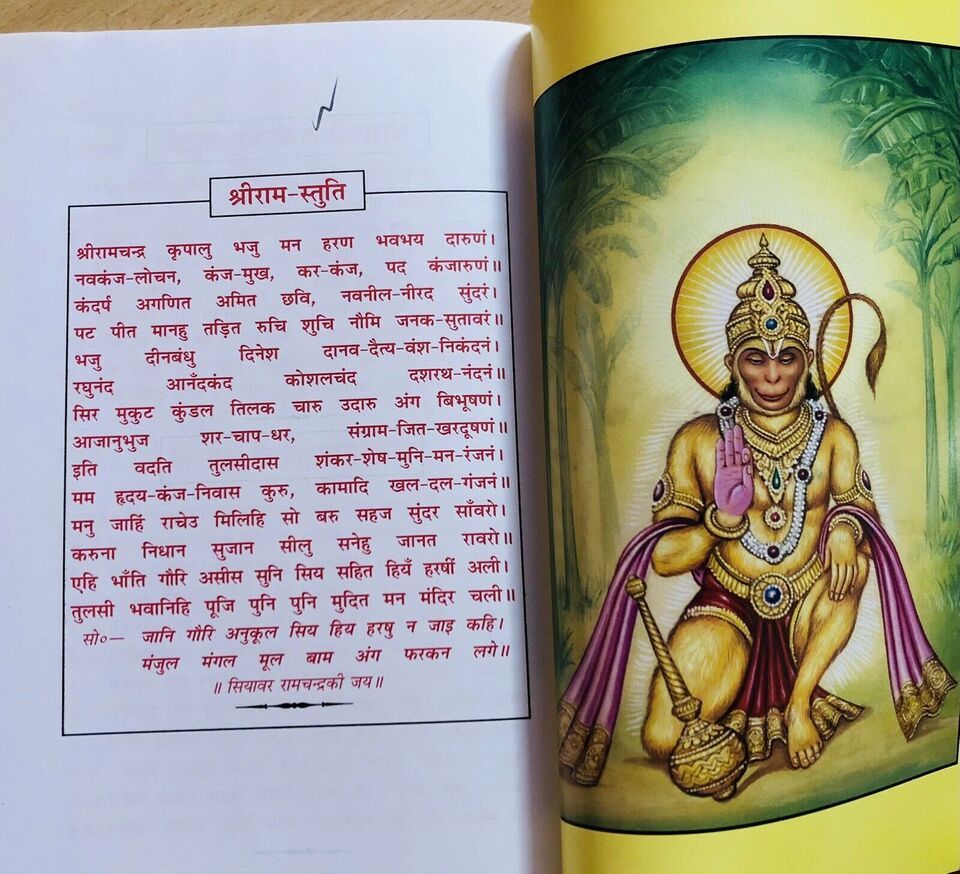 श्रीराम-स्तुति
श्रीरामचन्द्र कृपालु भजु मन हरण भवभय दारुणं।
नवकंज-लोचन, कंज-मुख, कर-कंज, पद कंजारुणं।
कंदर्प अगणित अमित छवि, नवनील-नीरद सुंदरं।
पट पीत मानहु तड़ित रुचि शुचि नौमि जनक-सुतावरं॥
भजु दीनबंधु दिनेश दानव-दैत्य-वंश-निकंदनं।
रघुनंद आनँदकंद कोशलचंद दशरथ-नंदनं॥
सिर मुकुट कुंडल तिलक चारु उदारु अंग बिभूषणं।
आजानुभुज शर-चाप-धर, संग्राम-जित-खरदूषणं॥
इति वदति तुलसीदास शंकर-शेष-मुनि-मन-रंजनं।
मम हृदय-कंज-निवास कुरु, कामादि खल-दल-गंजनं॥
मनु जाहिं राचेउ मिलिहि सो बरु सहज सुंदर साँवरो।
करुना निधान सुजान सीलु सनेहु जानत रावरो॥
एहि भाँति गौरि असीस सुनि सिय सहित हियँ हरषीं अली।
तुलसी भवानिहि पूजि पुनि पुनि मुदित मन मंदिर चली॥
सो०— जानि गौरि अनुकूल सिय हिय हरषु न जाइ कहि।
मंजुल मंगल मूल बाम अंग फरकन लगे॥
॥ सियावर रामचन्द्रकी जय॥